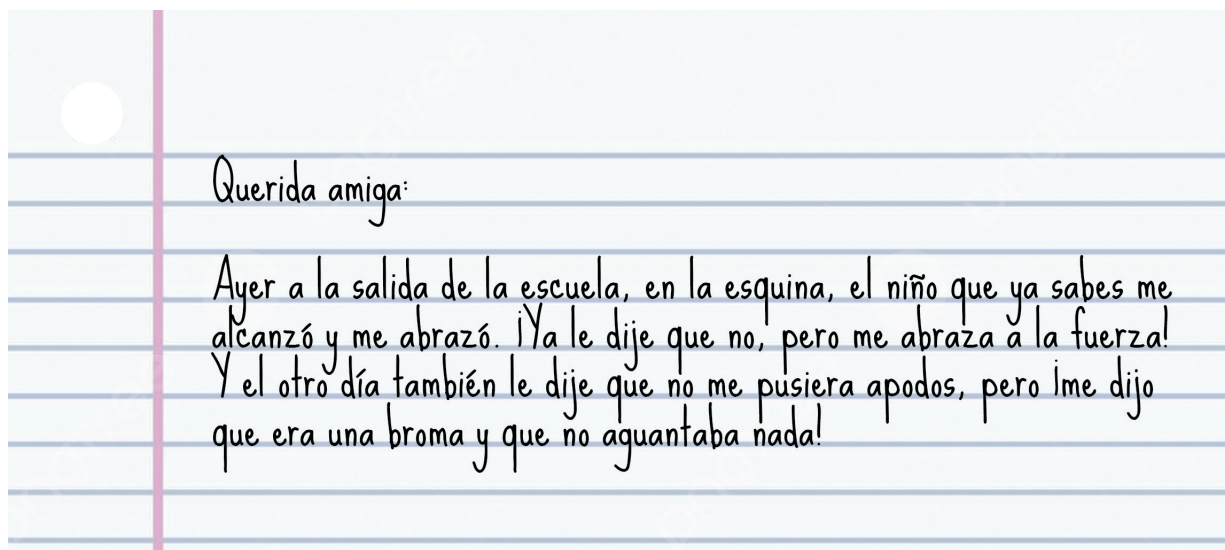 Querida amiga:
Ayer a la salida de la escuela, en la esquina, el niño que ya sabes me
alcanzó y me abrazó. ¡Ya le dije que no, pero me abraza a la fuerza!
Y el otro día también le dije que no me pusiera apodos, pero ¡me dijo
que era una broma y que no aguantaba nada!